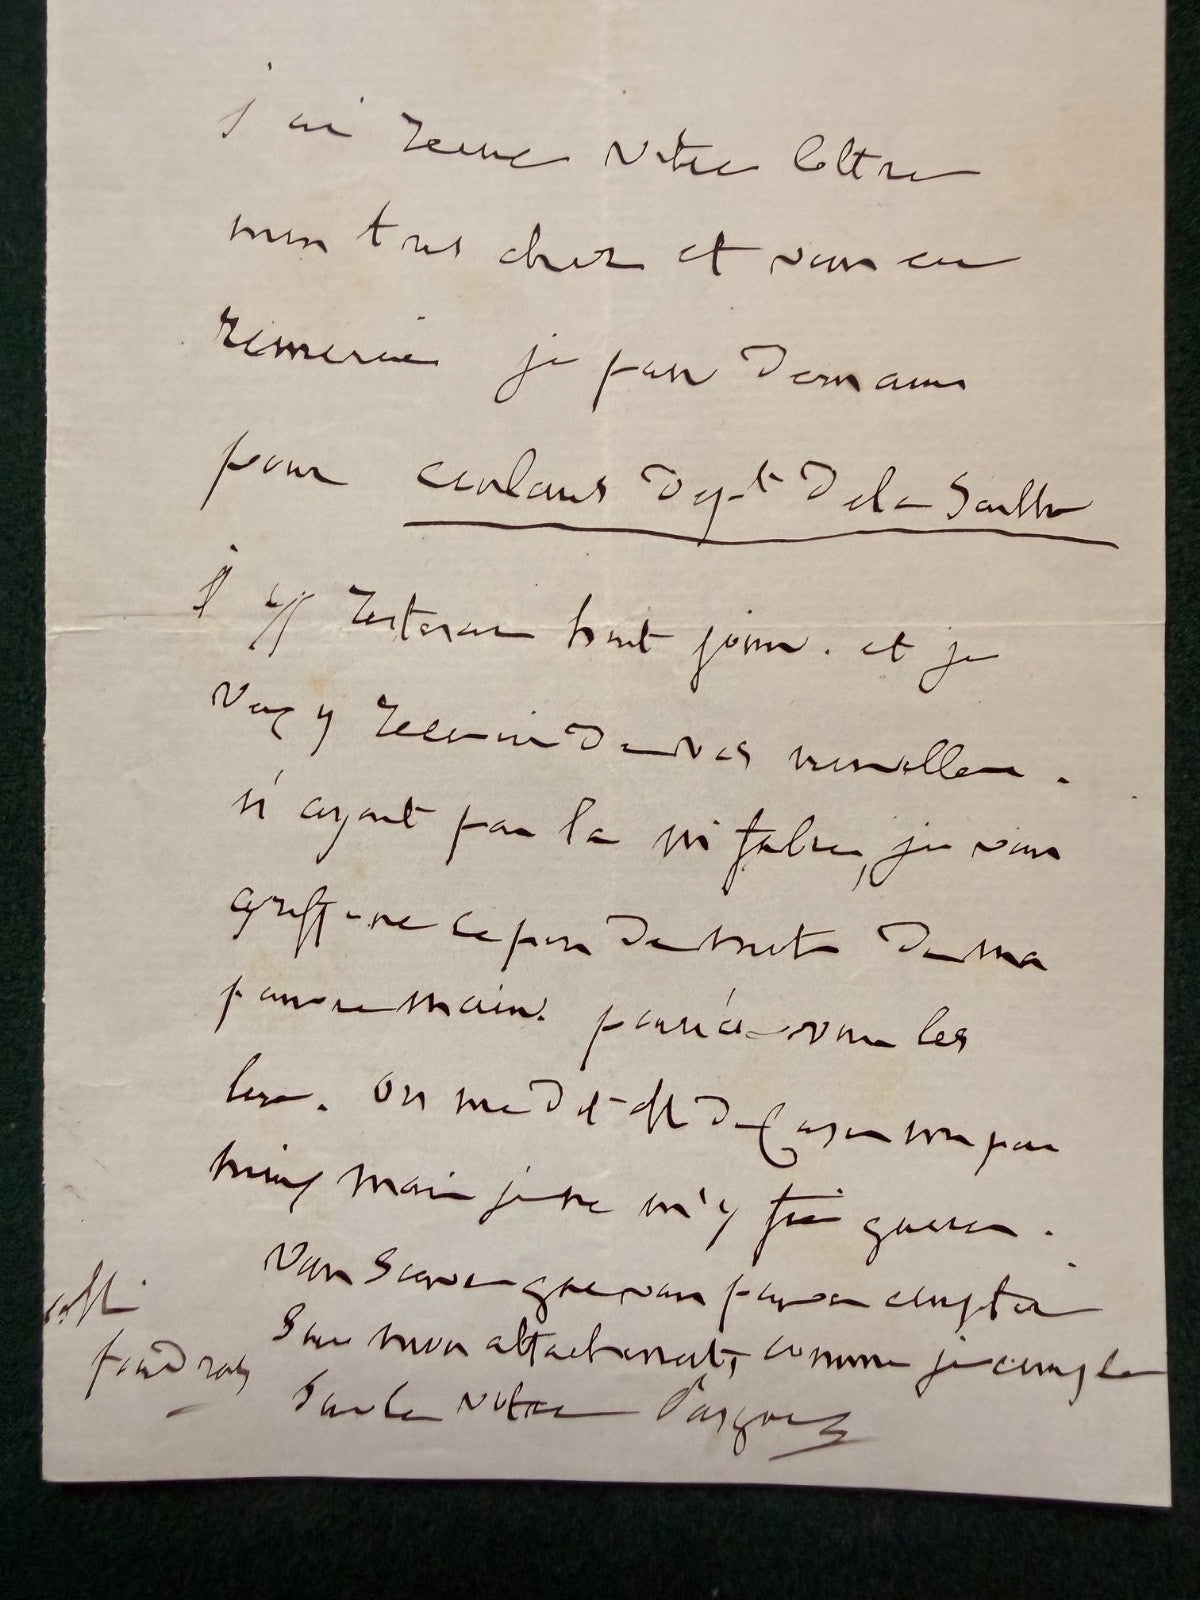 j'ai recue votre lettre
mon tres cher et vous en
remercie je pars demain
pour coulans dept de la Sarthe
J'y resterai huit jours. et je
vais y recevoir de vos nouvelles.
n'ayant pas la ni fabre, je vous
griffone ce peu de mots de ma
pauvre main. pourrez-vous les
lire. On me dit de
mieux mais je ne m'y fie guere.
Vous savez que vous pouvez compter
sur mon attachement, comme je compte
sur le votre